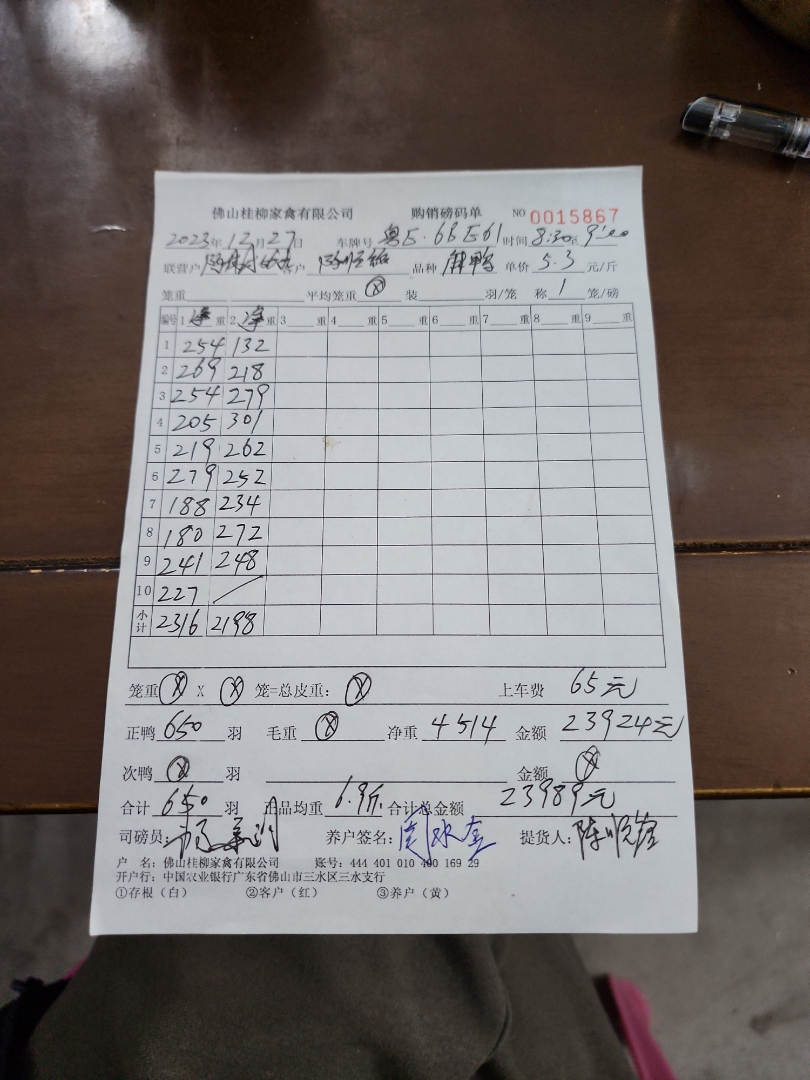 佛山桂柳家禽有限公司 购销磅码单 NO 0015867
2023年12月27日 车牌号 粤E·6BE61 时间 8:30至9:00
联营户 客户 品种 麻鸭 单价 5.3 元/斤
笼重 平均笼重 ⊗ 装 羽/笼 称 1 笼/磅
编号 1 净 重 2 净 重 3 重 4 重 5 重 6 重 7 重 8 重 9 重
1 254 132
2 269 218
3 254 279
4 205 301
5 219 262
6 279 252
7 188 234
8 180 272
9 241 248
10 227 /
小计 2316 2198
笼重 ⊗ X ⊗ 笼=总皮重: ⊗ 上车费 65元
正鸭 650 羽 毛重 ⊗ 净重 4514 金额 23924元
次鸭 ⊗ 羽 金额 ⊗
合计 650 羽 正品均重 6.9斤 合计总金额 23989元
司磅员: 养户签名: 提货人:
户 名: 佛山桂柳家禽有限公司 账号: 444 401 010 400 169 29
开户行: 中国农业银行广东省佛山市三水区三水支行
①存根（白） ②客户（红） ③养户（黄）